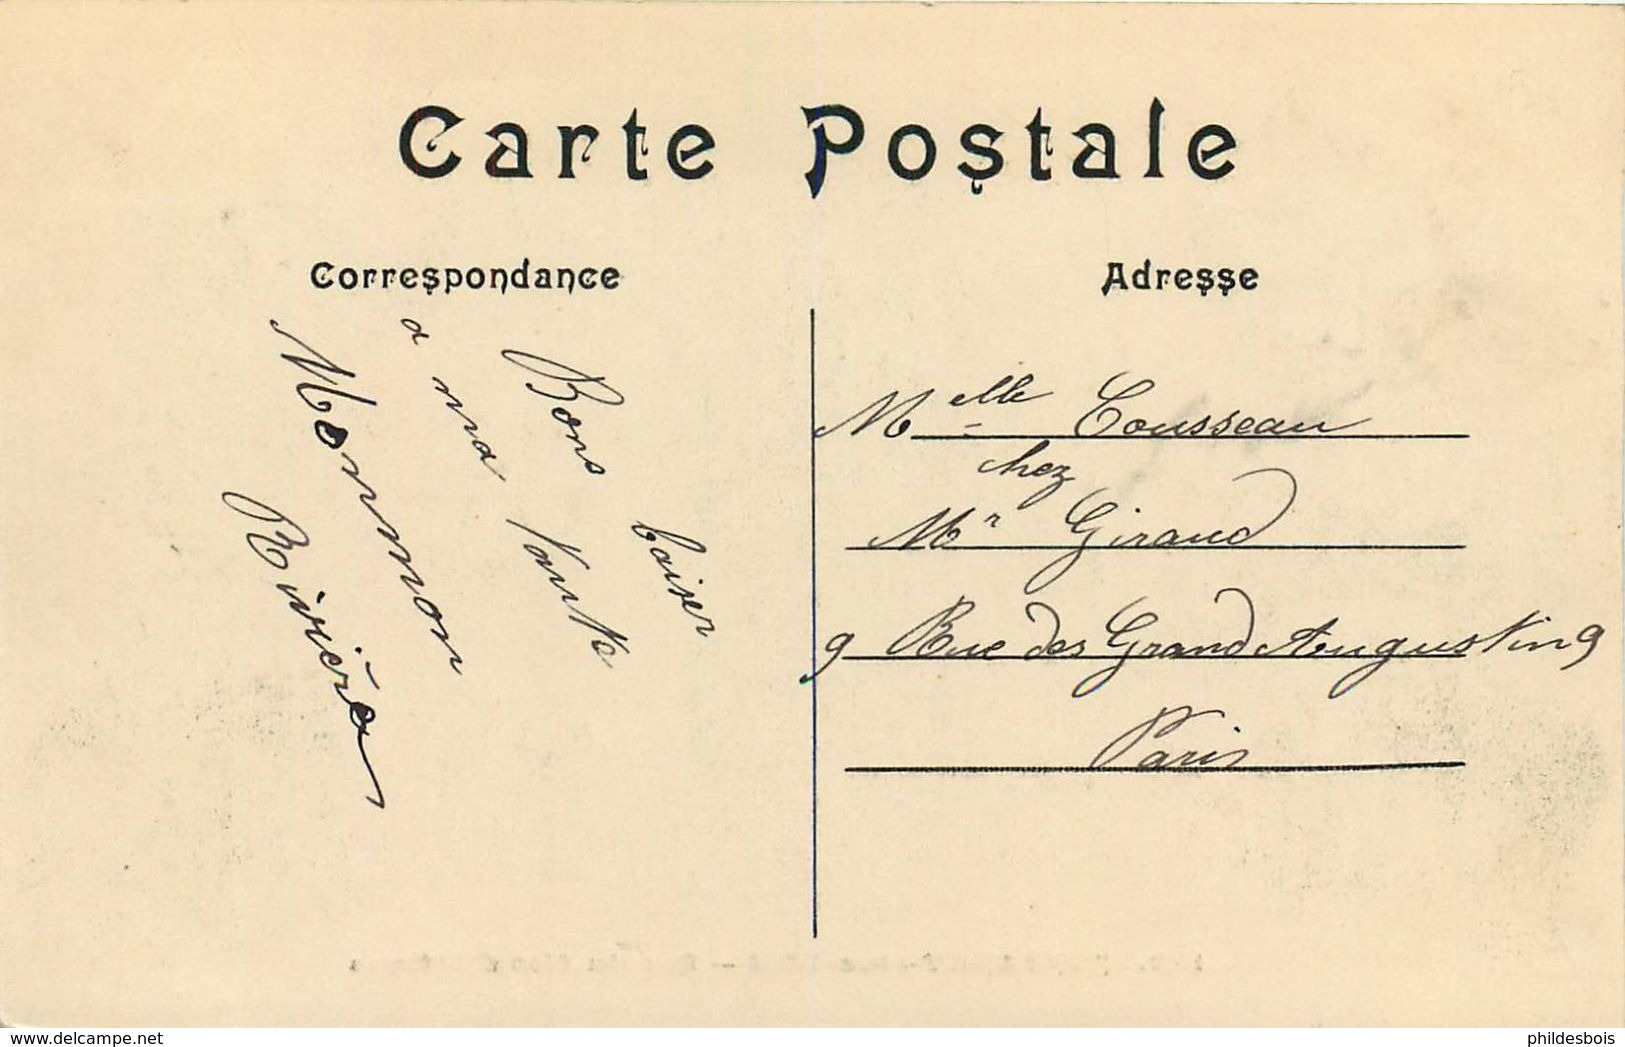 Carte Postale
Correspondance
Adresse
Bons baiser
a ma Tante
Mormon
Rivière
Melle Cousseau
chez
Mr Giraud
9 Rue des Grand Augustin 9
Paris
delcampe.net
phildesbois